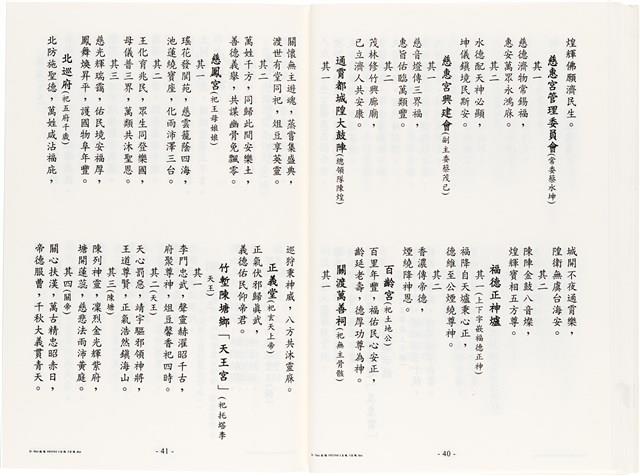 煌輝佛願濟民生。
慈惠宮管理委員會(常委蔡水坤)
其一
慈德濟物常錫福,
惠安萬眾永鴻庥。
其二
水德配天神必顯,
坤儀鎮境民斯安。
慈惠宮興建會(副主委蔡茂己)
其一
慈音燈傳三界福,
惠旨佑臨萬類豐。
其二
茂林修竹興廊廟,
己立濟人共安康。
通霄都城隍大鼓陣(總領隊陳煌)
其一
城開不夜通霄樂,
隍衛無虞台海安。
其二
陣陣金鼓八音燦,
煌輝寶相五方尊。
福德正神爐
其一(上下字嵌福德正神)
福降自天爐秉心正,
德維至公煙繞尊神。
其二
香濃傳帝德,
煙繞降神恩。
百齡宮(祀土地公)
百里年豐,福佑民心安正,
齡延老壽,德厚功尊為神。
關渡萬善祠(祀無主骨骸)
其一
- 40 -
關懷無主遊魂,蒸嘗集盛典,
渡世有堂同祀,俎豆享英靈。
其二
萬姓千方,同歸此間安樂土,
善德義舉,共謀幽骨免飄零。
慈鳳宮(祀王母娘娘)
其一
瑤花發閬苑,慈雲籠蔭四海,
池蓮繞寶座,化雨沛澤三台。
其二
王化育兆民,眾生同登樂國,
母儀普三界,萬類共沐聖恩。
其三
慈光輝瑞靄,佑民境安福厚,
鳳舞煥昇平,護國物阜年豐。
北巡府(祀五府千歲)
北防施聖德,萬姓咸沾福庇,
巡狩秉神威,八方共沐靈庥。
正義堂(祀玄天上帝)
正氣伏邪歸真武,
義德佑民仰帝君。
竹塹陳塘鄉「天王宮」(祀托塔李天王)
其一
李門忠武,聲靈赫濯昭千古,
府聚尊神,俎豆馨香祀四時。
其二(天王)
天心罰惡,靖宇驅邪領神將,
王道尊賢,正氣浩然鎮海山。
其三(陳塘)
陳列神靈,凜烈金光輝紫府,
塘開蓮蕊,慈悲法雨沛黃庭。
其四(關帝)
關心扶漢,萬古精忠昭赤日,
帝德服曹,千秋大義貫青天。
- 41 -